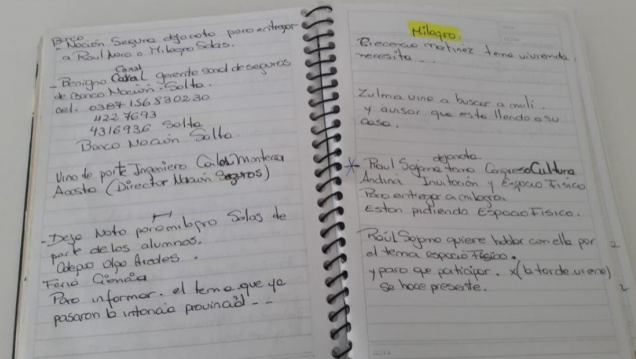 Banco
- Nación Segura dejo nota para entregar
a Raul Noro o Milagro Salas.
- Benigno Cabal Canal gerente zonal de seguros
de Banco Nación. Salta.
cel. 0387 156 830230
4227693
4316936 Salta
Banco Nación Salta
Vino de parte Ingeniero Carlos
Acosta (Director Nación Seguros)
- Dejo Nota para milagro Salas de
parte de los alumnos.
Colegio Olga Aredes.
Feria Ciencia
Para informar. el tema que ya
pasaron la intancia provincial --
Milagro.
martinez tema vivienda
necesita
Zulma vino a buscar a meli.
y avisar que esta llendo a su
casa.
* Raul dejo nota. tema Congreso Cultura
Andina Invitación y Espacio Fisico
Para entregar a milagro
Estan pidiendo Espacio Fisico.
Raúl quiere hablar con ella por
el tema espacio Físico.
y para que participar. x(la tarde
se hace presente.